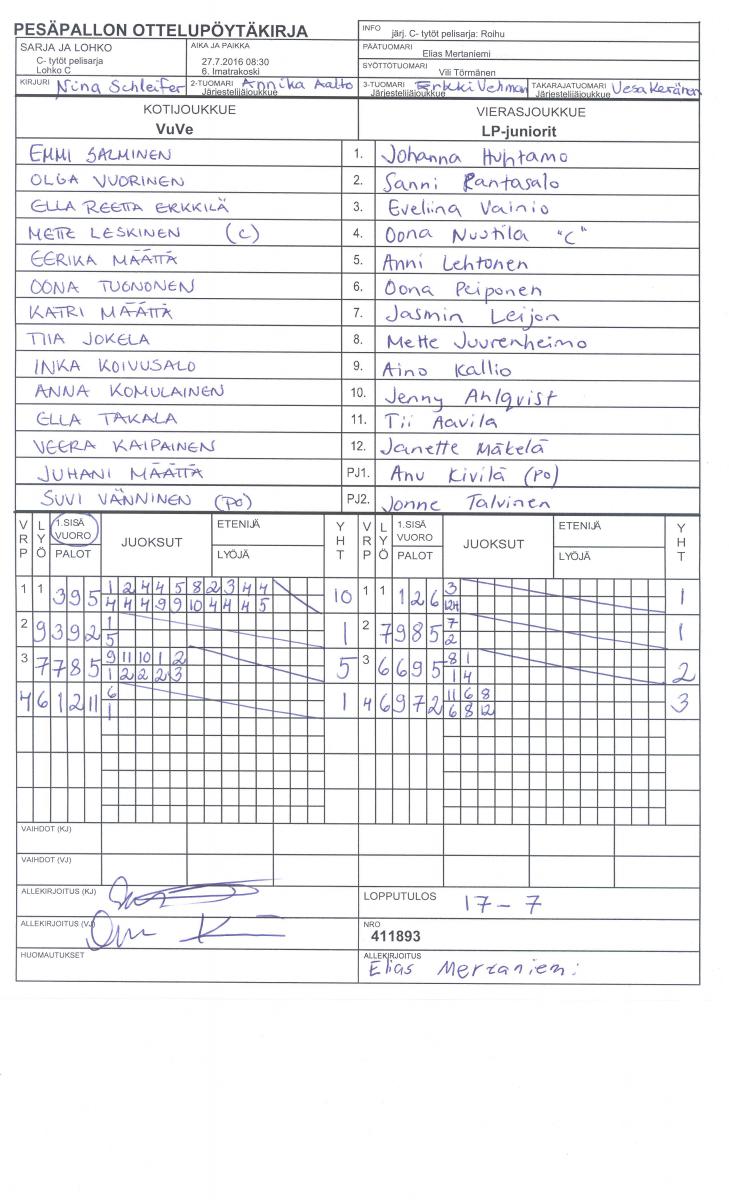 PESÄPALLON OTTELUPÖYTÄKIRJA
INFO järj. C- tytöt pelisarja: Roihu
SARJA JA LOHKO
C- tytöt pelisarja
Lohko C
AIKA JA PAIKKA
27.7.2016 08:30
6. Imatrakoski
PÄÄTUOMARI
Elias Mertaniemi
SYÖTTÖTUOMARI
Vili Törmänen
KIRJURI Nina Schleifer
2-TUOMARI Annika Aalto
Järjestelijäjoukkue
3-TUOMARI Erkki Vehman
Järjestelijäjoukkue
TAKARAJATUOMARI Vesa Keränen
KOTIJOUKKUE VIERASJOUKKUE
VuVe LP-juniorit
EMMI SALMINEN 1. Johanna Huhtamo
OLGA VUORINEN 2. Sanni Rantasalo
ELLA REETTA ERKKILÄ 3. Eveliina Vainio
METTE LESKINEN (C) 4. Oona Nuutila "C"
EERIKA MÄÄTTÄ 5. Anni Lehtonen
OONA TUONONEN 6. Oona Peiponen
KATRI MÄÄTTÄ 7. Jasmin Leijon
TIIA JOKELA 8. Mette Juurenheimo
INKA KOIVUSALO 9. Aino Kallio
ANNA KOMULAINEN 10. Jenny Ahlqvist
ELLA TAKALA 11. Tii Aavila
VEERA KAIPAINEN 12. Janette Mäkelä
JUHANI MÄÄTTÄ PJ1. Anu Kivilä (PO)
SUVI VÄNNINEN (PO) PJ2. Jonne Talvinen
VRP LYÖ 1.SISÄ VUORO PALOT JUOKSUT ETENIJÄ LYÖJÄ YHT VRP LYÖ 1.SISÄ VUORO PALOT JUOKSUT ETENIJÄ LYÖJÄ YHT
1 1 3 9 5 1 2 4 4 5 8 2 3 4 4 10 1 1 1 2 6 3 1
4 4 4 9 9 10 4 4 4 5 12
2 9 3 9 2 1 1 2 7 9 8 5 7 1
5 2
3 7 7 8 5 9 11 10 1 2 5 3 6 6 9 5 8 1 2
1 2 2 2 3 1 4
4 6 1 2 11 6 1 4 6 9 7 2 11 6 8 3
1 6 8 12
VAIHDOT (KJ)
VAIHDOT (VJ)
ALLEKIRJOITUS (KJ)
LOPPUTULOS 17 - 7
ALLEKIRJOITUS (VJ)
NRO
411893
HUOMAUTUKSET
ALLEKIRJOITUS
Elias Mertaniemi